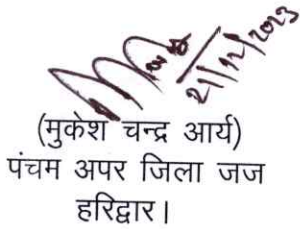 21/12/2023
(मुकेश चन्द्र आर्य)
पंचम अपर जिला जज
हरिद्वार।